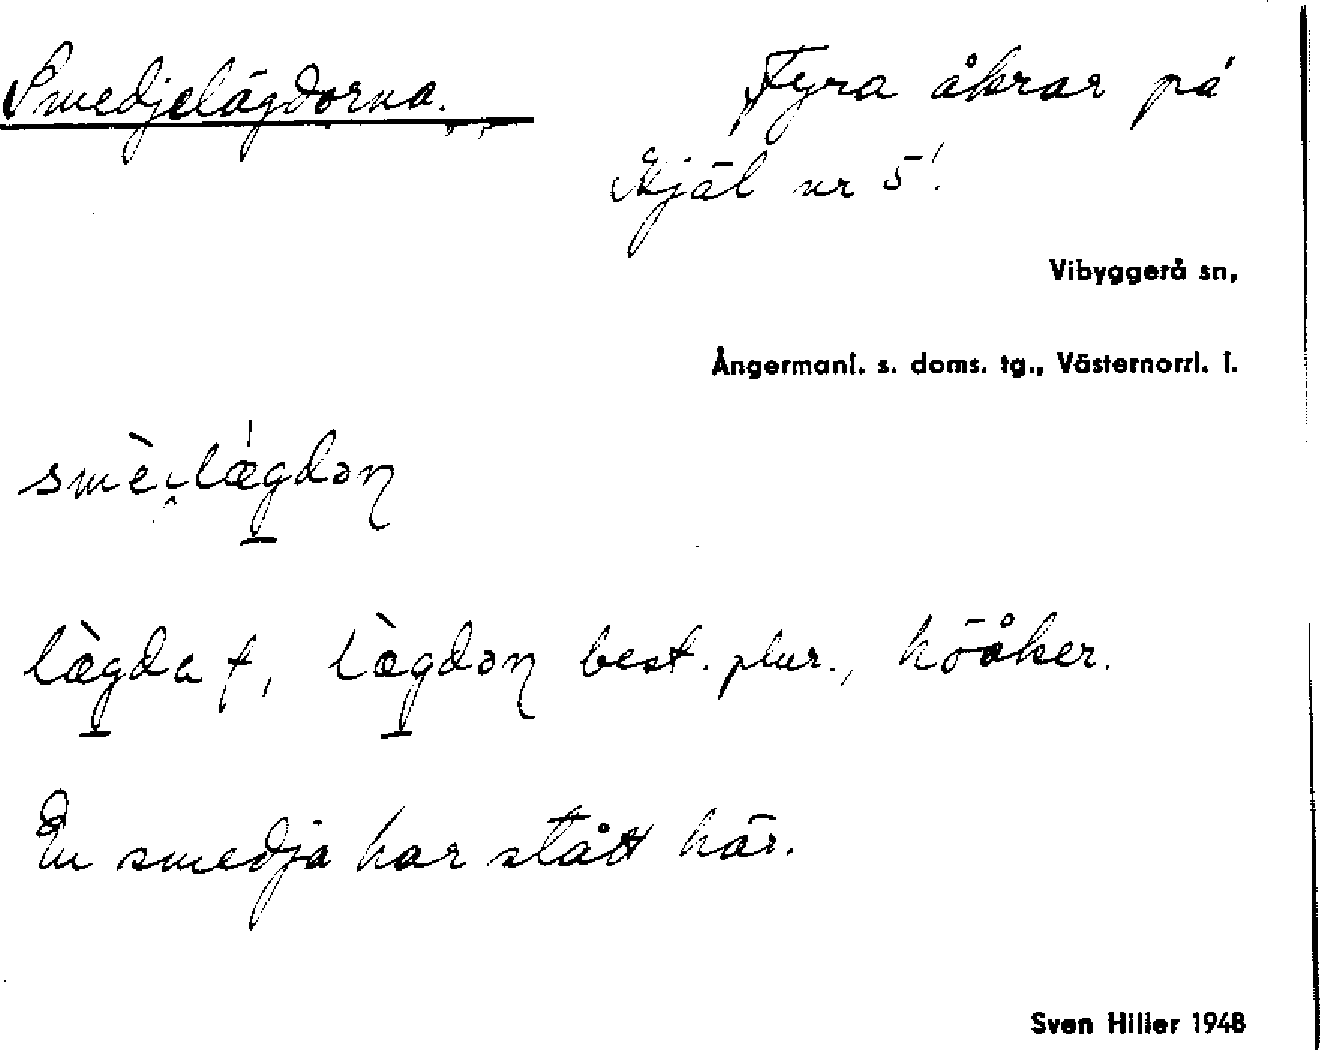 Smedjelägdorna. Fyra åkrar på
Mjäl nr 5!
Vibyggerå sn,
Ångermanl. s. doms. tg., Västernorrl. l.
lægda f, lægdəɳ best. plur., höåker.
En smedja har stått här.
Sven Hiller 1948